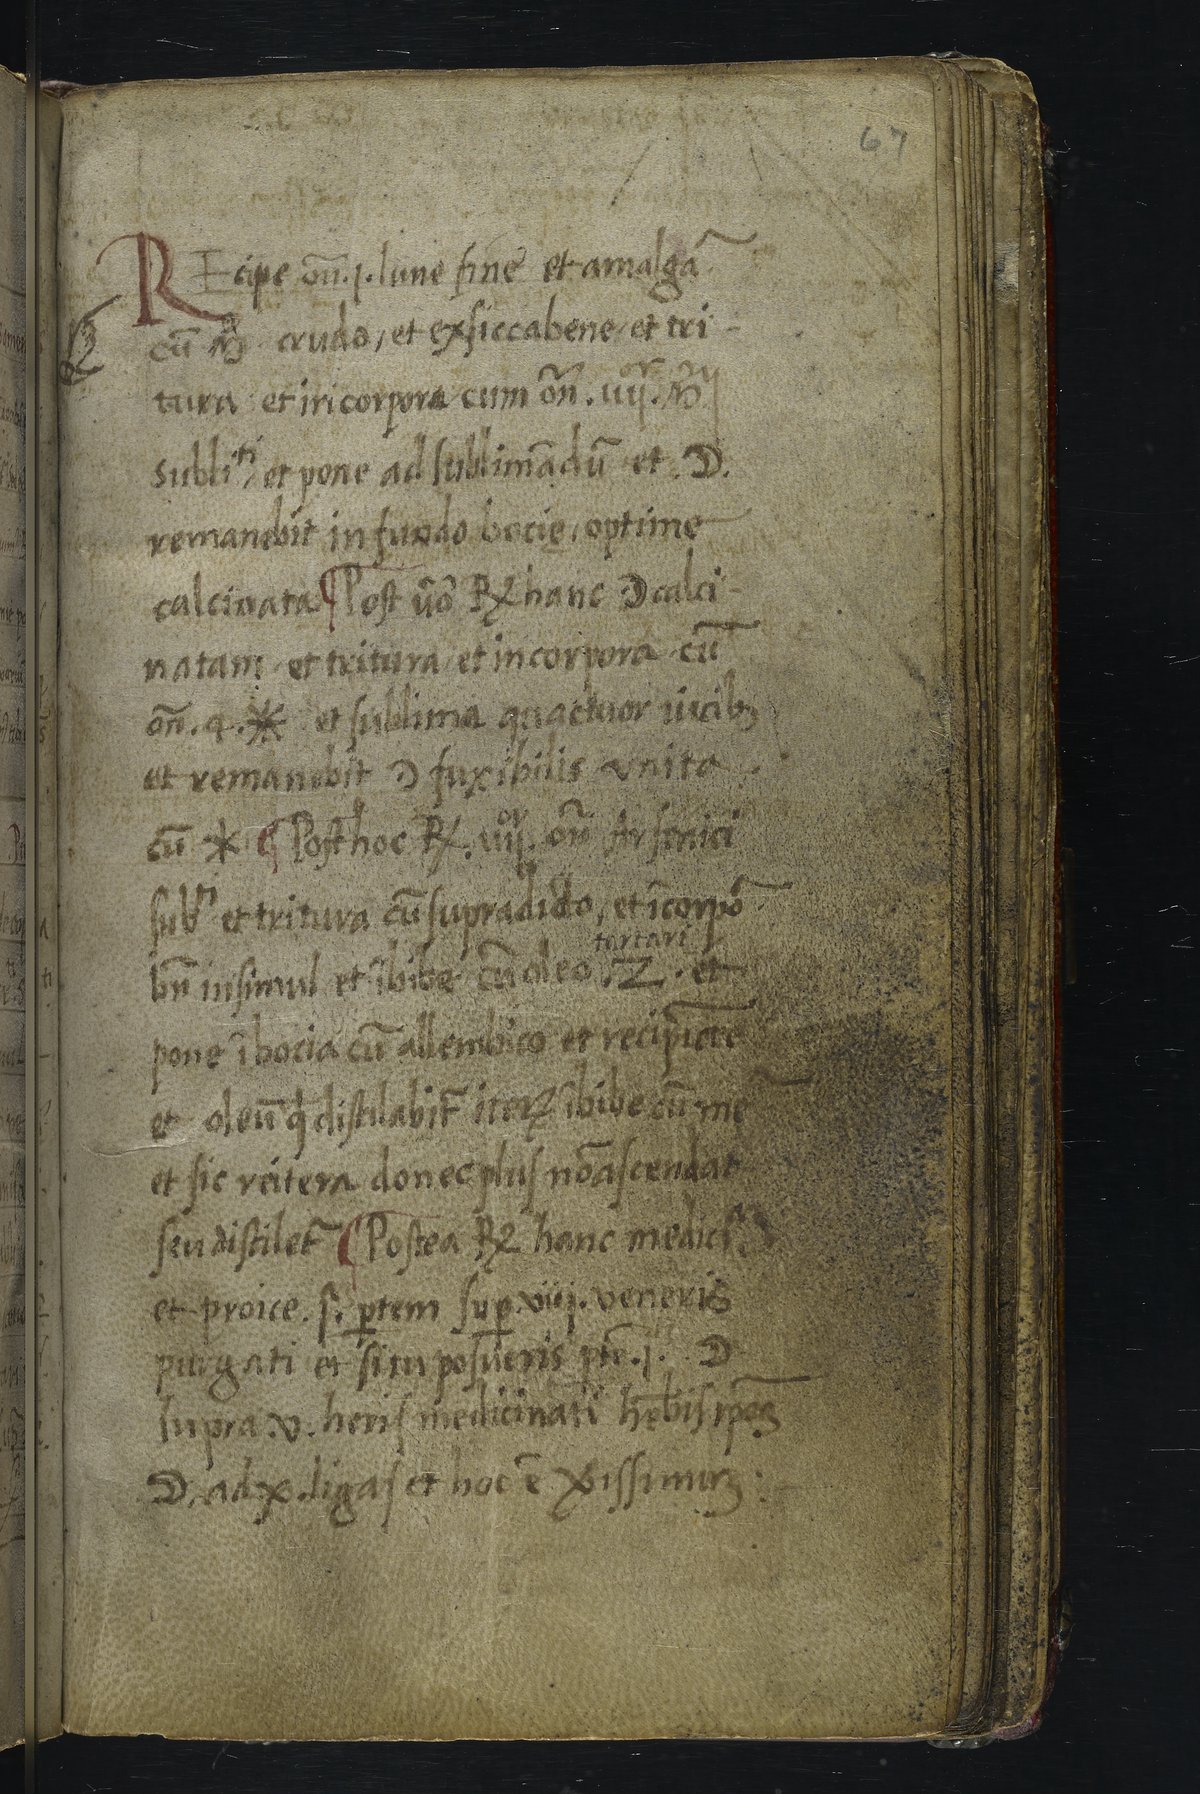 67
REcipe oñ. j. lune fine et amalgā
cū crudo, et exsiccabene, et tri-
tura et incorpora cum oñ. iiij
subliti, et pone ad sublimādū et ☽.
remanebit in fundo bocie, optime
calcinata ¶ Post ūō ℞ hanc ☽ calci-
natam et tritura, et incorpora cū
oñ. 4. ✳ et sublima quactuor uicibꝫ
et remanebit ☽ fuxibilis unita
cū ✳ ¶ Post hoc ℞. iiijor. oñ Arsenici
subti et tritura cū supradicto, et īcorpō
tartari
bñ insimul et ībibe cū oleo . et
pone ī bocia cū allembico et recipiēte
et oleū qđ distilabit̄ iterꝝ ībibe cū mē
et sic reitera donec plus nō ascendat
seu distilet̄ ¶ Postea ℞ hanc
et proice. s. ꝑtem suꝑ. viij. veneris
purgati et si tu posueris pte. j. ☽
supra v. medicinati
☽. ad x. ligas et hoc ē